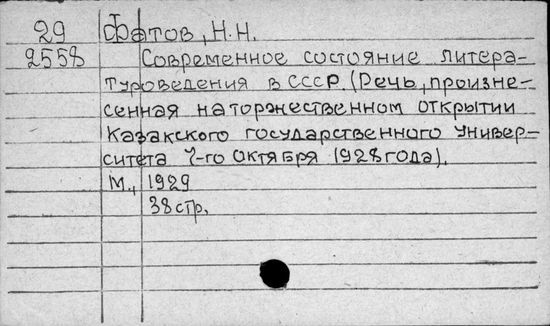 29 Фатов, Н.Н.
2558 Современное состояние литера-
туроведения в СССР. (Речь, произне-
сенная на торжественном открытии
Казакского государственного Универ-
ситета 7-го октября 1928 года).
М., 1929
38 стр.